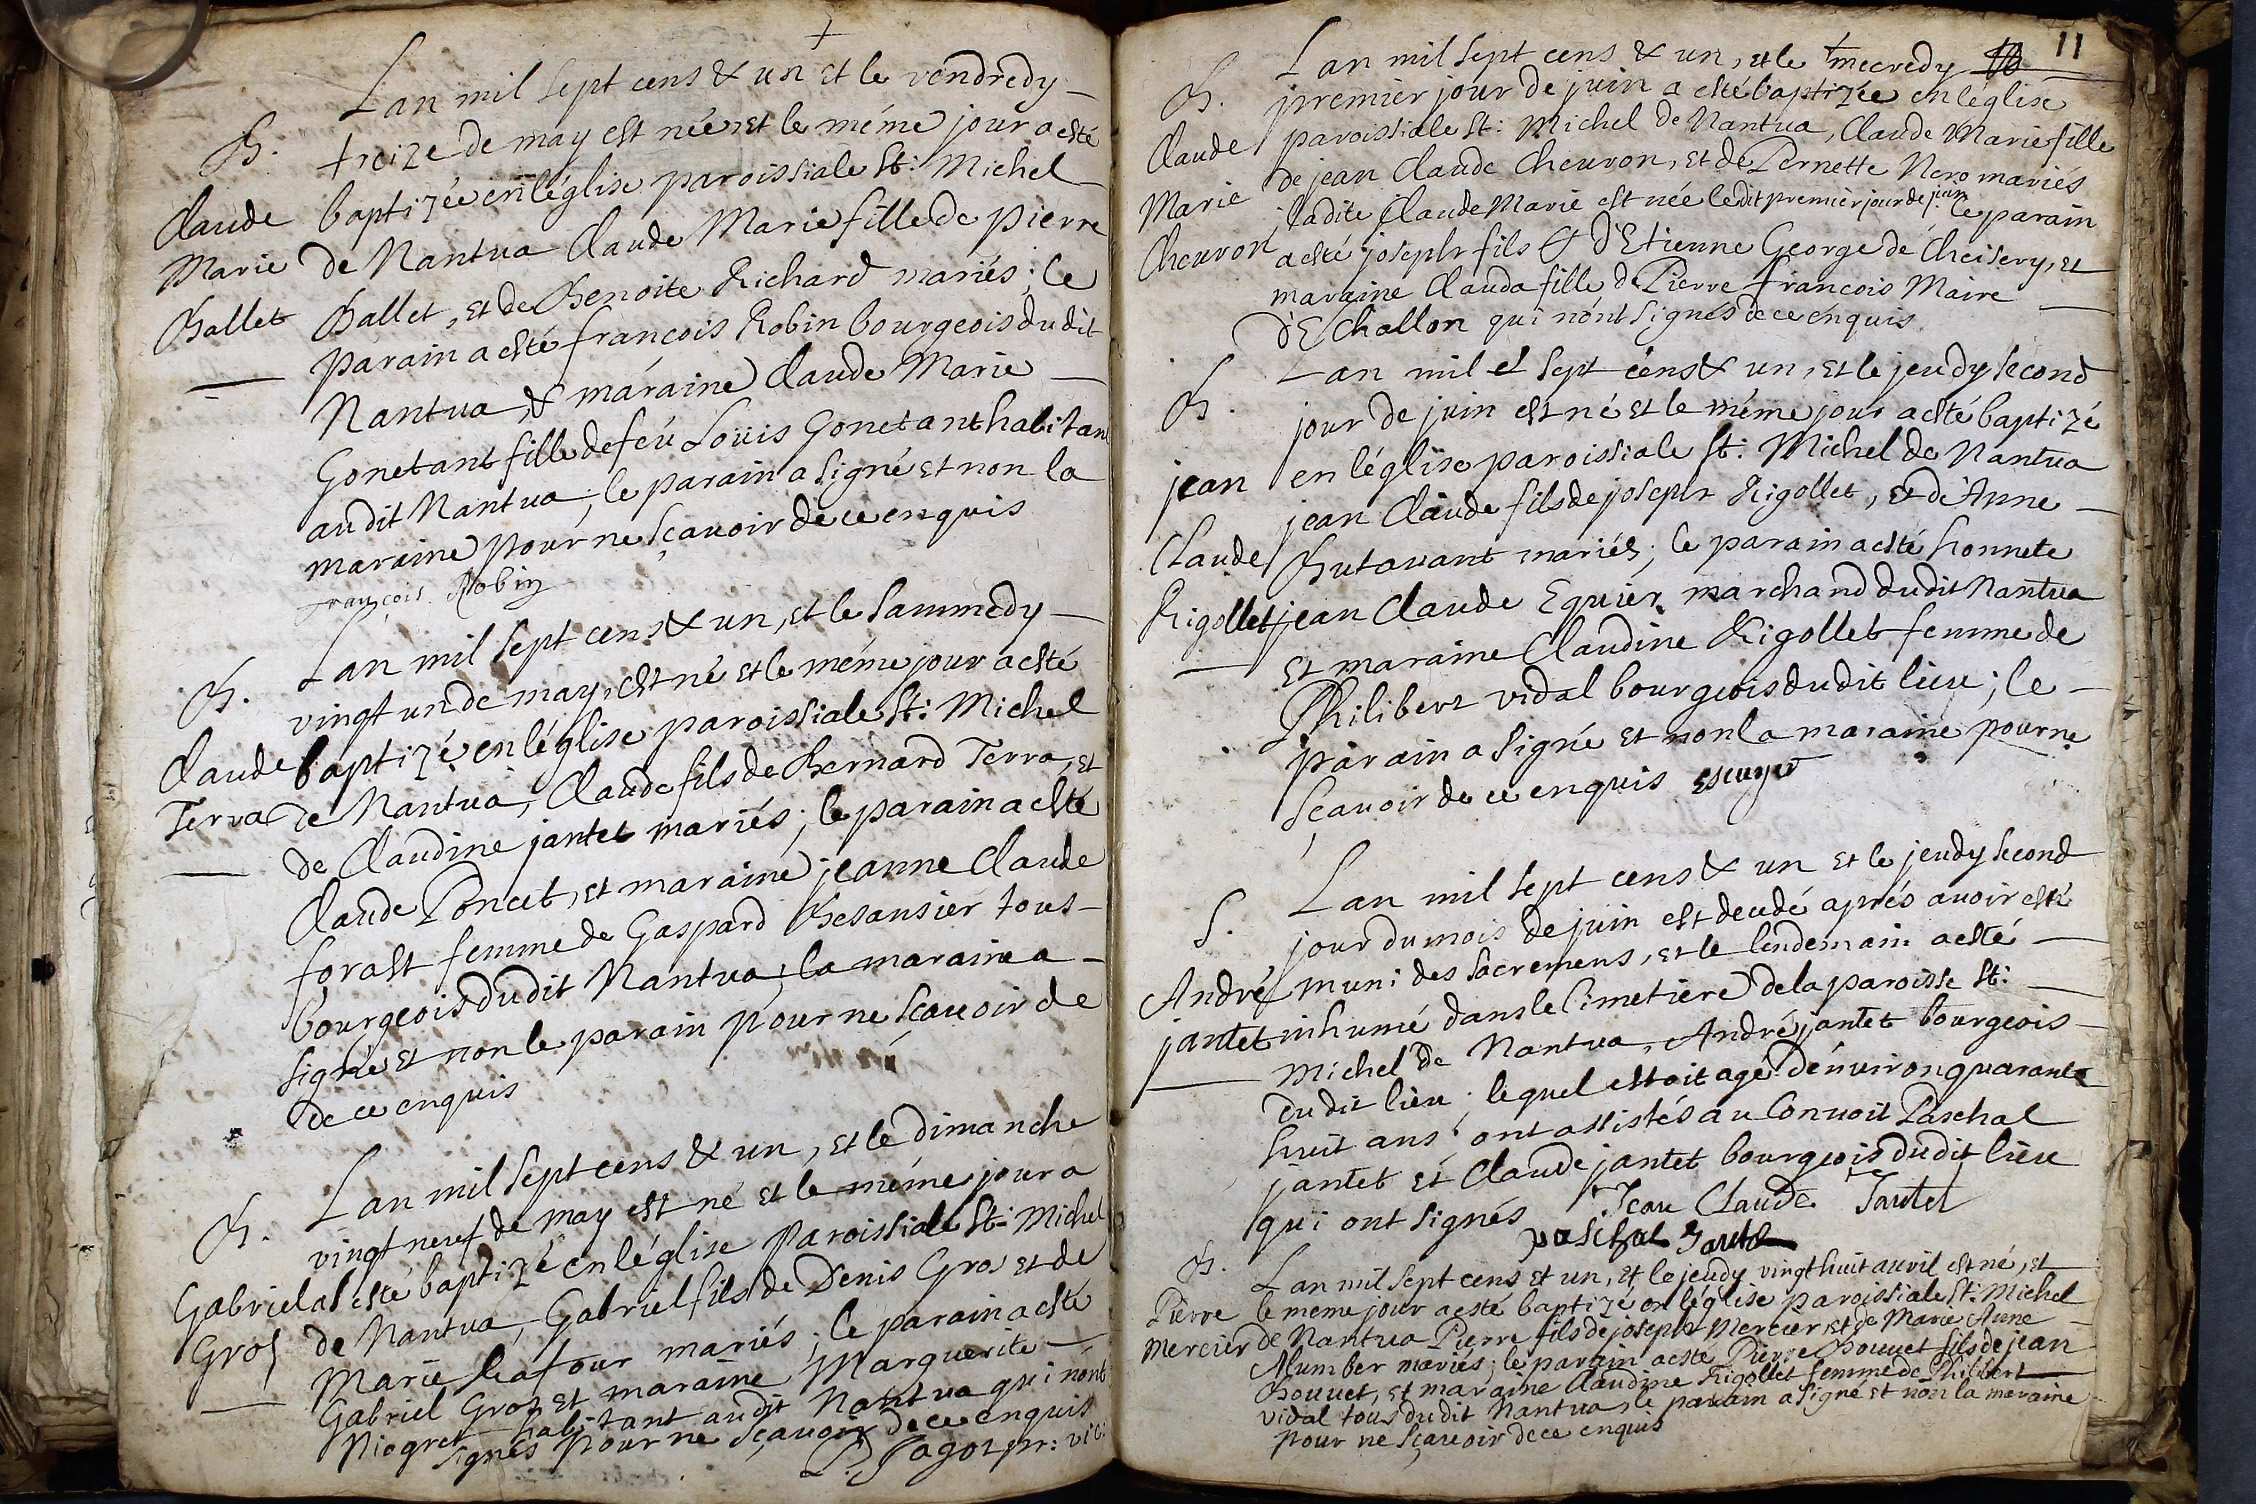 L'an mil sept cens & un et le vendredy
B. treize de may est née, et le méme jour a esté
Claude baptizée en l'église paroissiale St: Michel
Marie de Nantua Claude Marie fille de Pierre
Ballet Ballet, et de Benoite Richard mariés; le
parain a esté francois Robin bourgeois dudit
Nantua, & maraine Claude Marie
Gonetant fille de feu Loüis Gonetant habitant
audit Nantua; le parain a signé et non la
maraine pour ne sçavoir de ce enquis
françois Robin
L'an mil sept cens & un, et le sammedy
B. vingt un de may, est né et le méme jour a esté
Claude baptizé en l'église paroissiale St: Michel
Terra de Nantua, Claude fils de Bernard Terra, et
de Claudine jantet mariés; le parain a esté
Claude Poncet, et maraine jeanne Claude
forast femme de Gaspard Besansier tous
bourgeois dudit Nantua; la maraine a
signé et non le parain pour ne scavoir de
de ce enquis
L'an mil sept cens & un, et le dimanche
B. vingt neuf de may est né et le méme jour a
Gabriel a esté baptizé en l'église Paroissiale St: Michel
Gros de Nantua, Gabriel fils de Denis Gros et de
Marie Lafour mariés; le parain a esté
Gabriel Gros et maraine Marguerite
Niogret habitant audit Nantua qui n'ont
signés pour ne sçavoir de ce enquis
P. Jagot pr: vic:
11
L'an mil sept cens & un, et le mecredy
B. premier jour de juin a esté baptizée en l'église
Claude paroissiale St: Michel de Nantua, Claude Marie fille
Marie de jean Claude Chevron, et de Pernette Nero mariés
ladite Claude Marie est née ledit premier jour de juin le parain
Chevron a esté joseph fils d'Etienne George de Cheisery, et
maraine Clauda fille de Pierre francois Maire
d'Echallon qui n'ont signés de ce enquis
L'an mil et sept cens & un, et le jeudy second
B. jour de juin est né et le méme jour a esté baptizé
jean en l'église paroissiale St: Michel de Nantua
jean Claude fils de joseph Rigollet, et d'Anne
Claude Butavant mariés; le parain a esté honnete
Rigollet jean Claude Equier marchand dudit Nantua
et maraine Claudine Rigollet femme de
Philibert vidal bourgeois dudit lieu; le
parain a signé et non la maraine pour ne
sçavoir de ce enquis escuyer
L'an mil sept cens & un et le jeudy second
S. jour du mois de juin est decedé aprés avoir esté
André muni des sacremens, et le lendemain a esté
jantet inhumé dans le Cimetiere de la paroisse St:
Michel de Nantua, André jantet bourgeois
dudit lieu; lequel estoit agé d'environ quarante
huit ans; ont assistés au Convoit Paschal
jantet et Claude jantet bourgeois dudit lieu
qui ont signés Jean Claude Jantet
paschal Jantet
B. L'an mil sept cens et un, et le jeudy vingt huit avril est né, et
Pierre le meme jour a esté baptizé en l'église paroissiale St: Michel
Mercier de Nantua Pierre fils de joseph Mercier et de Marie Anne
Alumber mariés; le parain a esté Pierre Bouvet fils de jean
Bouvet, et maraine Claudine Rigollet femme de Philibert
vidal tous dudit Nantua, le parain a signé et non la maraine
pour ne sçavoir de ce enquis